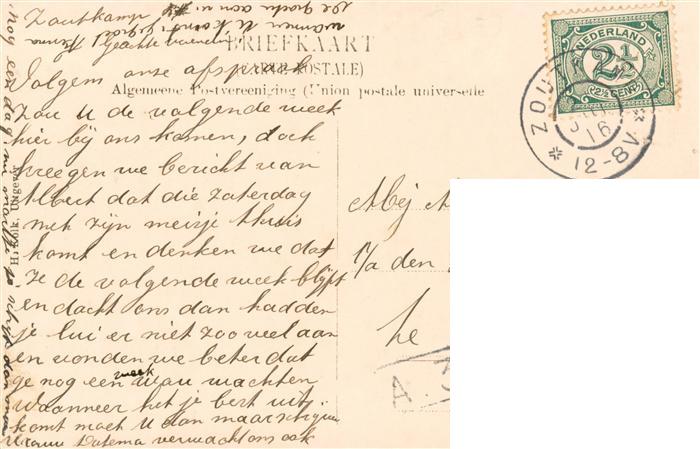 Zoutkamp
Geachte vriendin
BRIEFKAART
(CARTE POSTALE)
Algemeene Postvereeniging (Union postale universelle
Volgens onze afspraak
zou U de volgende week
hier bij ons komen, doch
kreegen we bericht van
Albert dat die Zaterdag
met zijn meisje thuis
komt en denken we dat
ze de volgende week blijft
en dacht ons dan hadden
je lui er niet zoo veel aan
en vonden we beter dat
ge nog een week wachten
Waanneer het je best uit
komt moet U dan maar schrijven
Vrouw Datema verwacht ons ook
nog een dag
schrijf dan
wanneer U komt
De groete
NEDERLAND
2½
(2½ CENT)
ZOU
16
12-8V
Mej
p/a den
he
H. Kolk, Uitgever